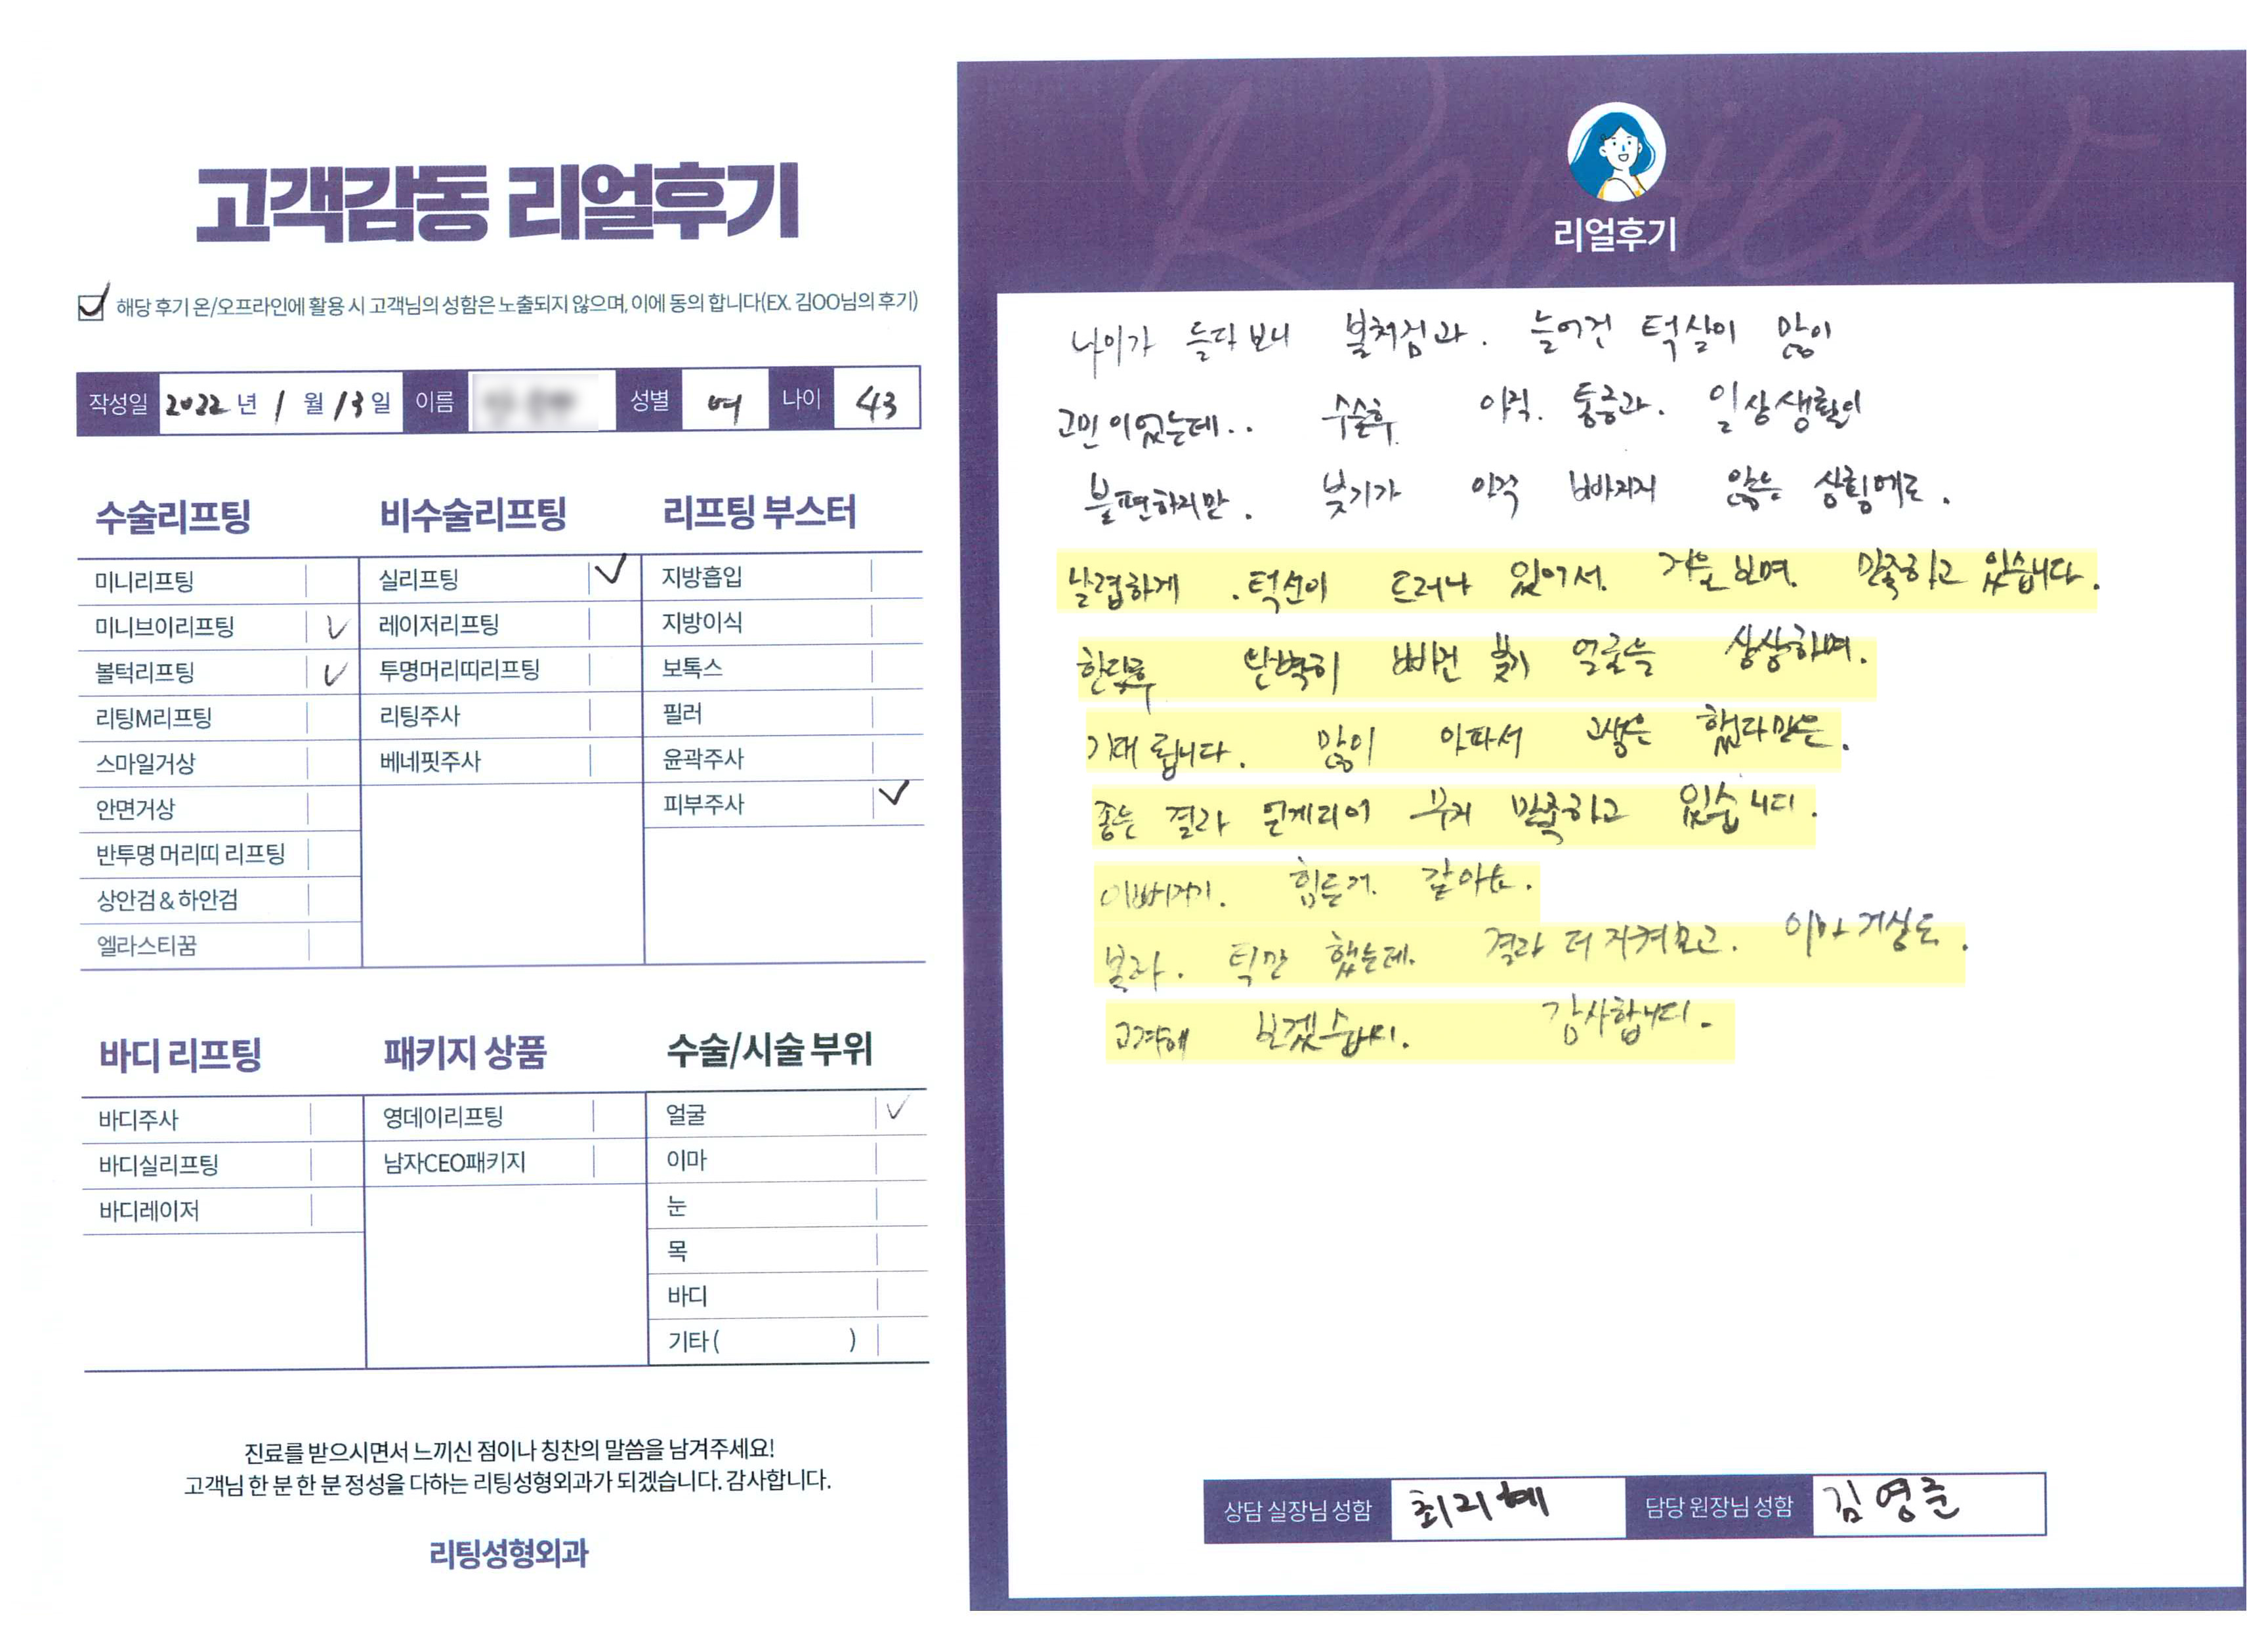 고객감동 리얼후기
해당 후기 온/오프라인에 활용 시 고객님의 성함은 노출되지 않으며, 이에 동의 합니다(EX. 김OO님의 후기)
작성일 2022년 1월 13일 이름 성별 여 나이 43
수술리프팅
미니리프팅
미니브이리프팅 V
볼턱리프팅 V
리팅M리프팅
스마일거상
안면거상
반투명 머리띠 리프팅
상안검 & 하안검
엘라스티꿈
비수술리프팅
실리프팅 ✓
레이저리프팅
투명머리띠리프팅
리팅주사
베네핏주사
리프팅 부스터
지방흡입
지방이식
보톡스
필러
윤곽주사
피부주사 ✓
바디 리프팅
바디주사
바디실리프팅
바디레이저
패키지 상품
영데이리프팅
남자CEO패키지
수술/시술 부위
얼굴 ✓
이마
눈
목
바디
기타 ( )
진료를 받으시면서 느끼신 점이나 칭찬의 말씀을 남겨주세요!
고객님 한 분 한 분 정성을 다하는 리팅성형외과가 되겠습니다. 감사합니다.
리팅성형외과
Review
리얼후기
나이가 들다 보니 볼처짐과. 늘어건 턱살이 많이
고민이었는데.. 수술후 아직. 통증과. 일상생활이
불편하지만. 붓기가 아직 빠지지 않은 상황에도.
날렵하게. 턱선이 드러나 있어서. 거울 보며. 만족하고 있습니다.
한달후 완벽히 빠진 붓기 얼굴을 상상하며.
기대 됩니다. 많이 아파서 고생은 했다만은.
좋은 결과 만족하고 있습니다.
이뻐지기. 힘든거. 같아요.
볼과. 턱만 했는데. 결과 더 지켜보고. 이마 거상도.
고려해 보겠습니다. 감사합니다.
상담 실장님 성함 최지혜 담당 원장님 성함 김영준